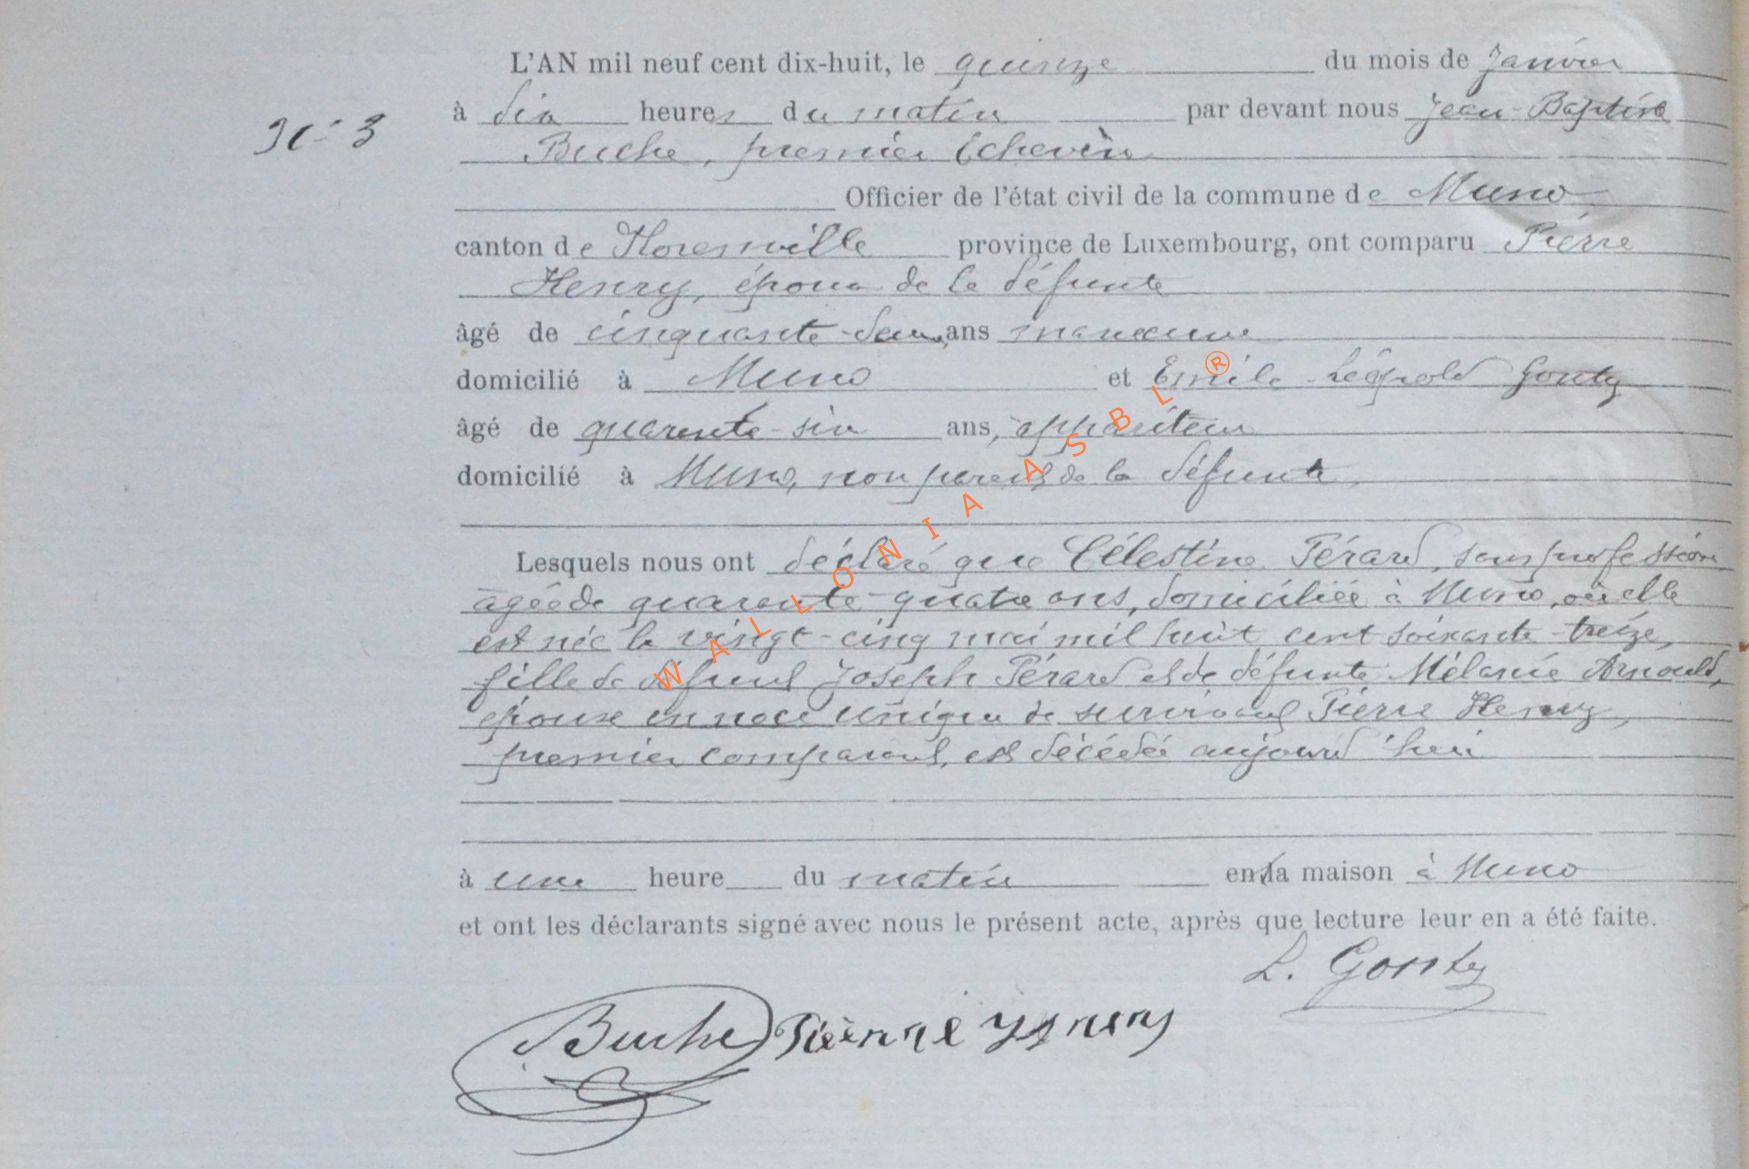 L'AN mil neuf cent dix-huit, le quinze du mois de Janvier
N° 3
à dix heures du matin par devant nous Jean-Baptiste
Buche, premier Echevin
Officier de l'état civil de la commune de Muno
canton de Florenville province de Luxembourg, ont comparu Pierre
Henry, époux de la défunte
âgé de cinquante-deux ans manœuvre
domicilié à Muno et Emile Léopold Gouty
âgé de quarante-six ans, appariteur
domicilié à Muno, non parent de la défunte
Lesquels nous ont déclaré que Célestine Pérard, sans profession
âgée de quarante-quatre ans, domiciliée à Muno, où elle
est née le vingt-cinq mai mil huit cent soixante-treize,
fille de défunt Joseph Pérard et de défunte Mélanie Arnould,
épouse en noce unique de survivant Pierre Henry,
premier comparant, est décédée aujourd'hui
à une heure du matin en sa maison à Muno
et ont les déclarants signé avec nous le présent acte, après que lecture leur en a été faite.
L. Gouty
Buche Pierre Henry
WALLONIA ASBL ®